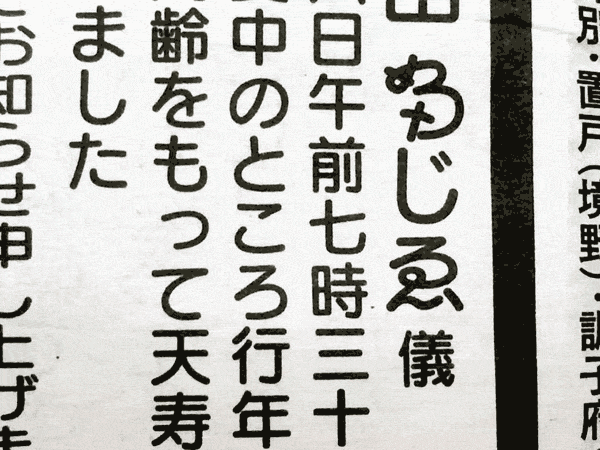 別・置戸(境野)・訓子府
じゑ 儀
日午前七時三十
中のところ行年
齢をもって天寿
ました
お知らせ申し上げま